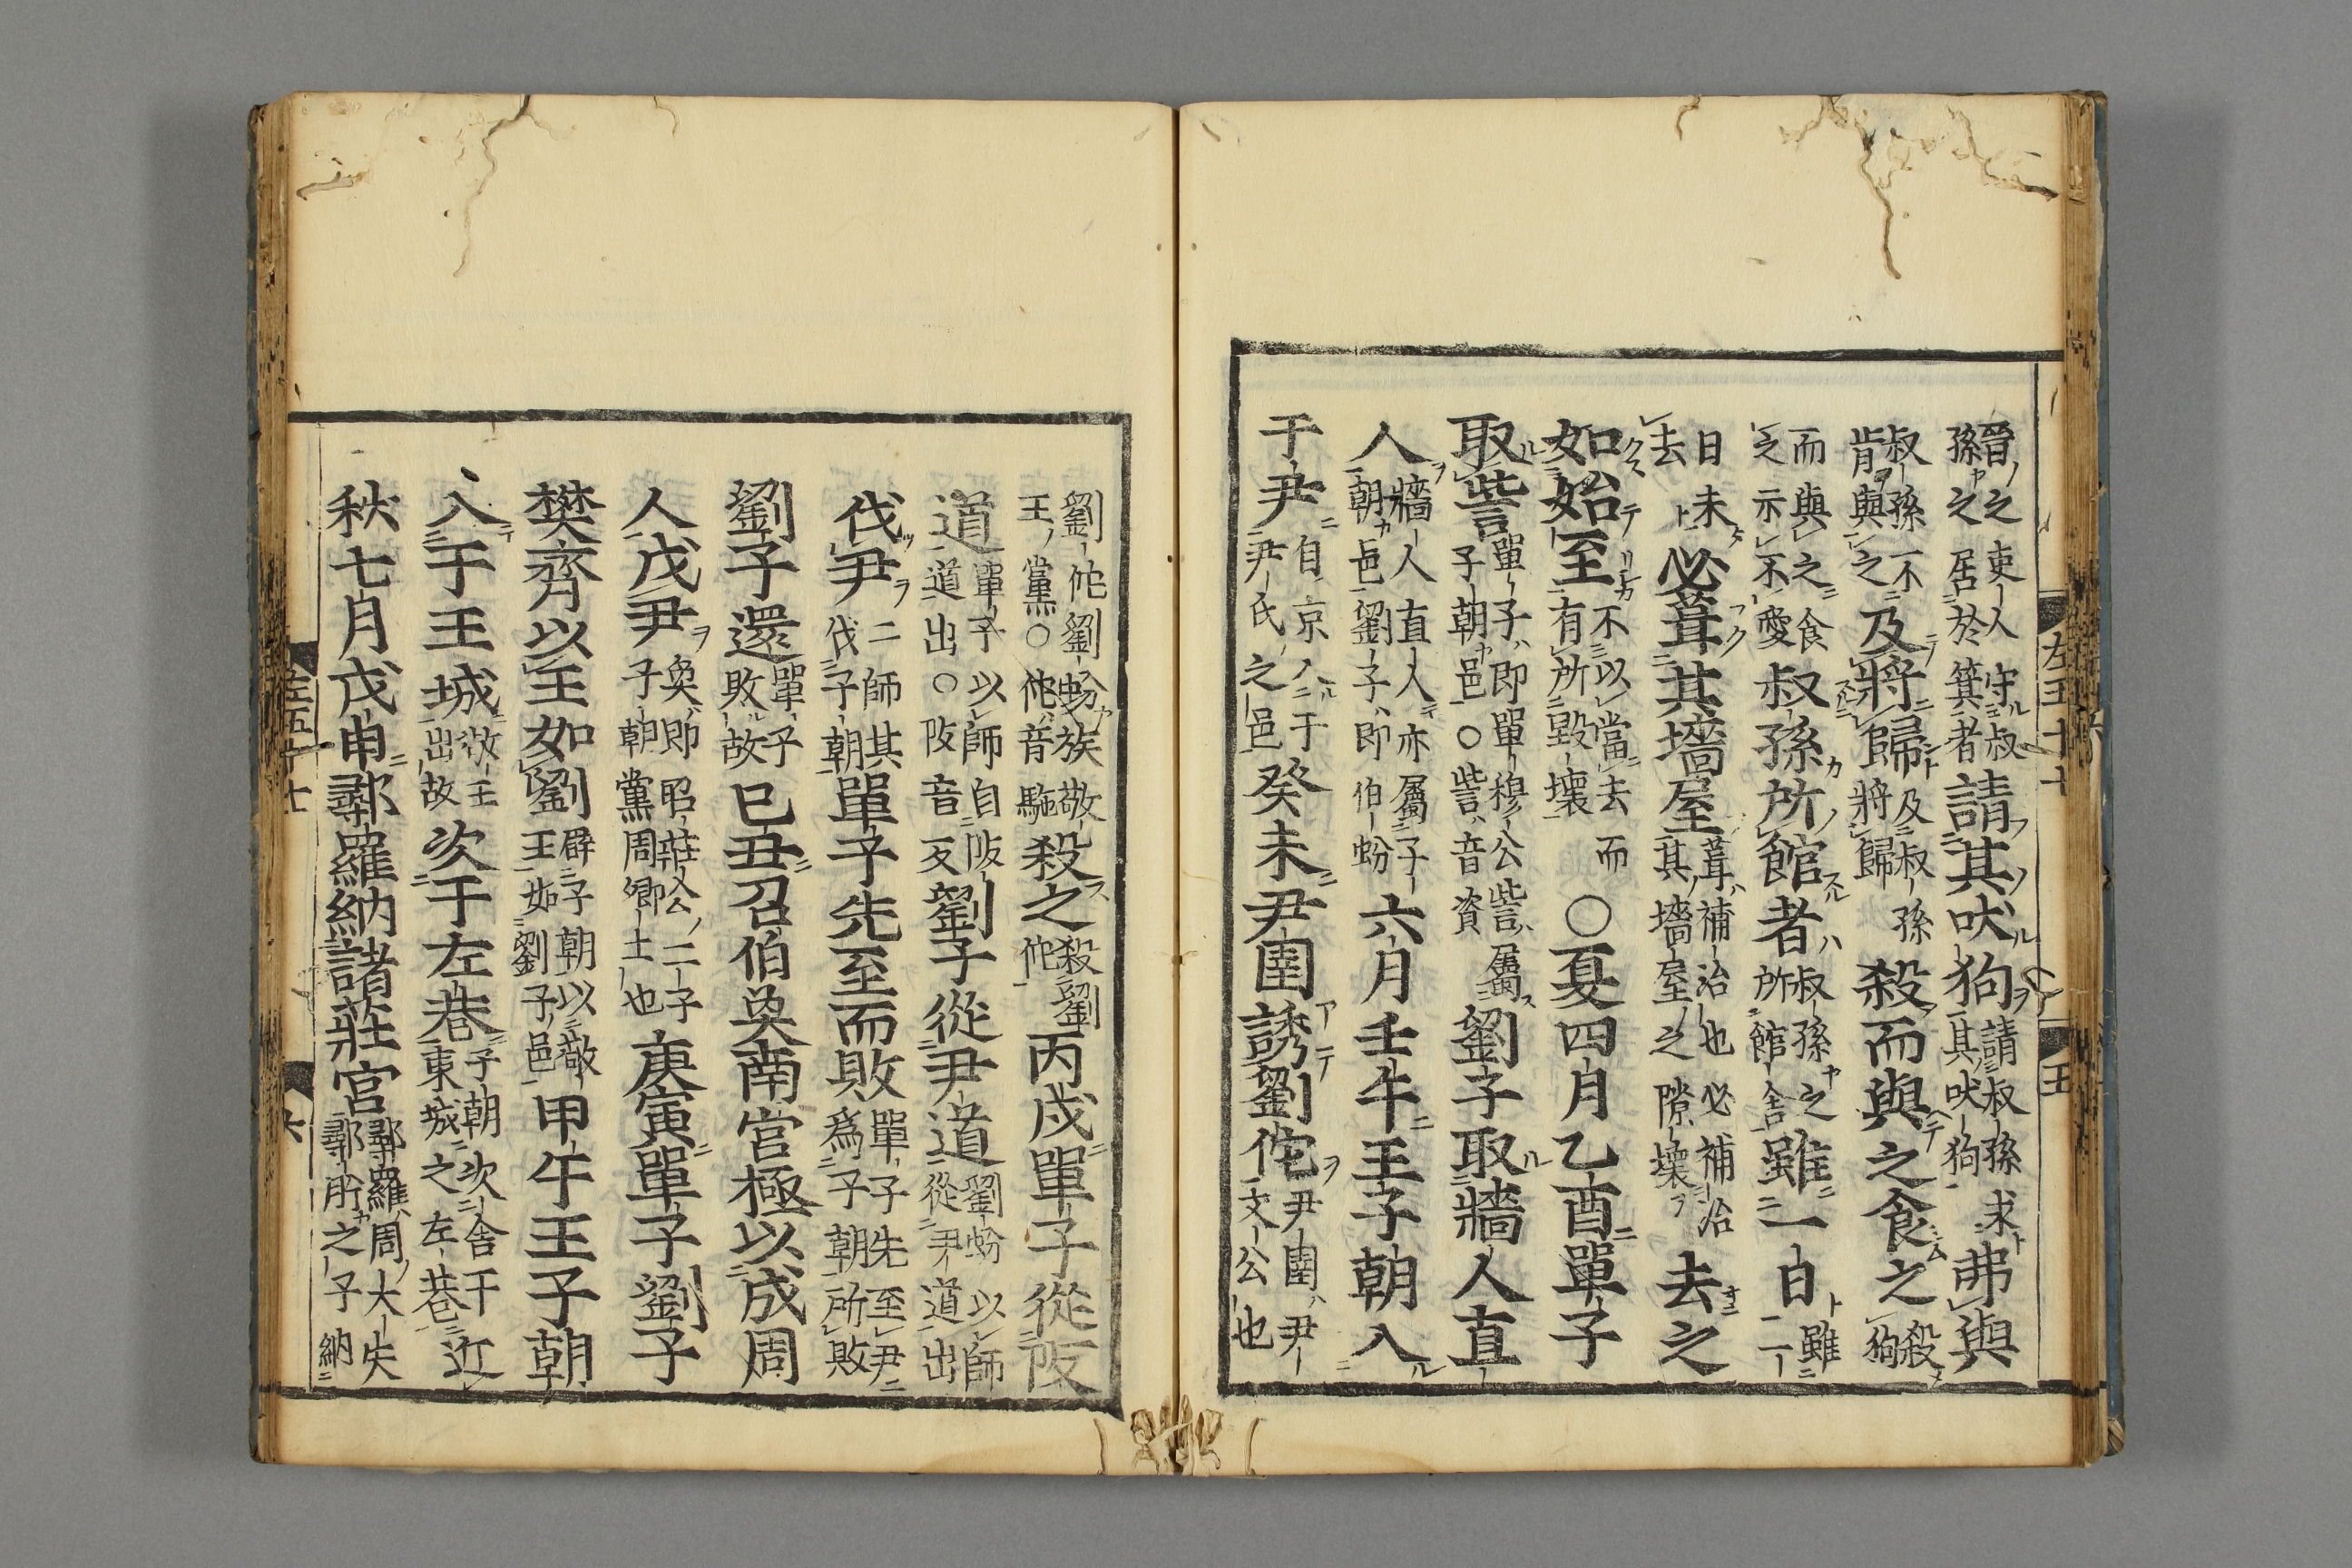 晉之吏人守叔孫之居於箕者請其吠狗請叔孫求其吠狗弗與
叔孫不肯與之及將歸及叔孫將歸殺而與之食之殺狗
而與之食之示不愛叔孫所館者叔孫之所館舍雖一日雖一日
日未去必葺其墻屋葺補治也必補治其墻屋之隙壞去之
如始至不以當去而有所毀壞○夏四月乙酉單子
取訾單子即單穆公訾屬子朝邑○訾音資劉子取牆人直
人牆人直人亦屬子朝邑劉子即伯蚡六月壬午王子朝入
于尹自京入于尹氏之邑癸未尹圉誘劉佗尹圉尹文公也
劉佗劉蚡族敬王黨○佗音駞殺之殺劉佗丙戌單子從阪
道單子以師自阪道出○阪音反劉子從尹道劉蚡以師從尹道出
伐尹二師其伐子朝單子先至而敗單子先至尹爲子朝所敗
劉子還單子敗故己丑召伯奐南宮極以成周
人戍尹奐即昭莊公二子子朝黨周卿士也庚寅單子劉子
樊齊以王如劉辟子朝以敬王如劉子邑甲午王子朝
入于王城敬王出故次于左巷子朝次舍于東城之左巷近
秋七月戊申鄩羅納諸莊宮鄩羅周大夫鄩肸之子納
左五十
五
左五十
六